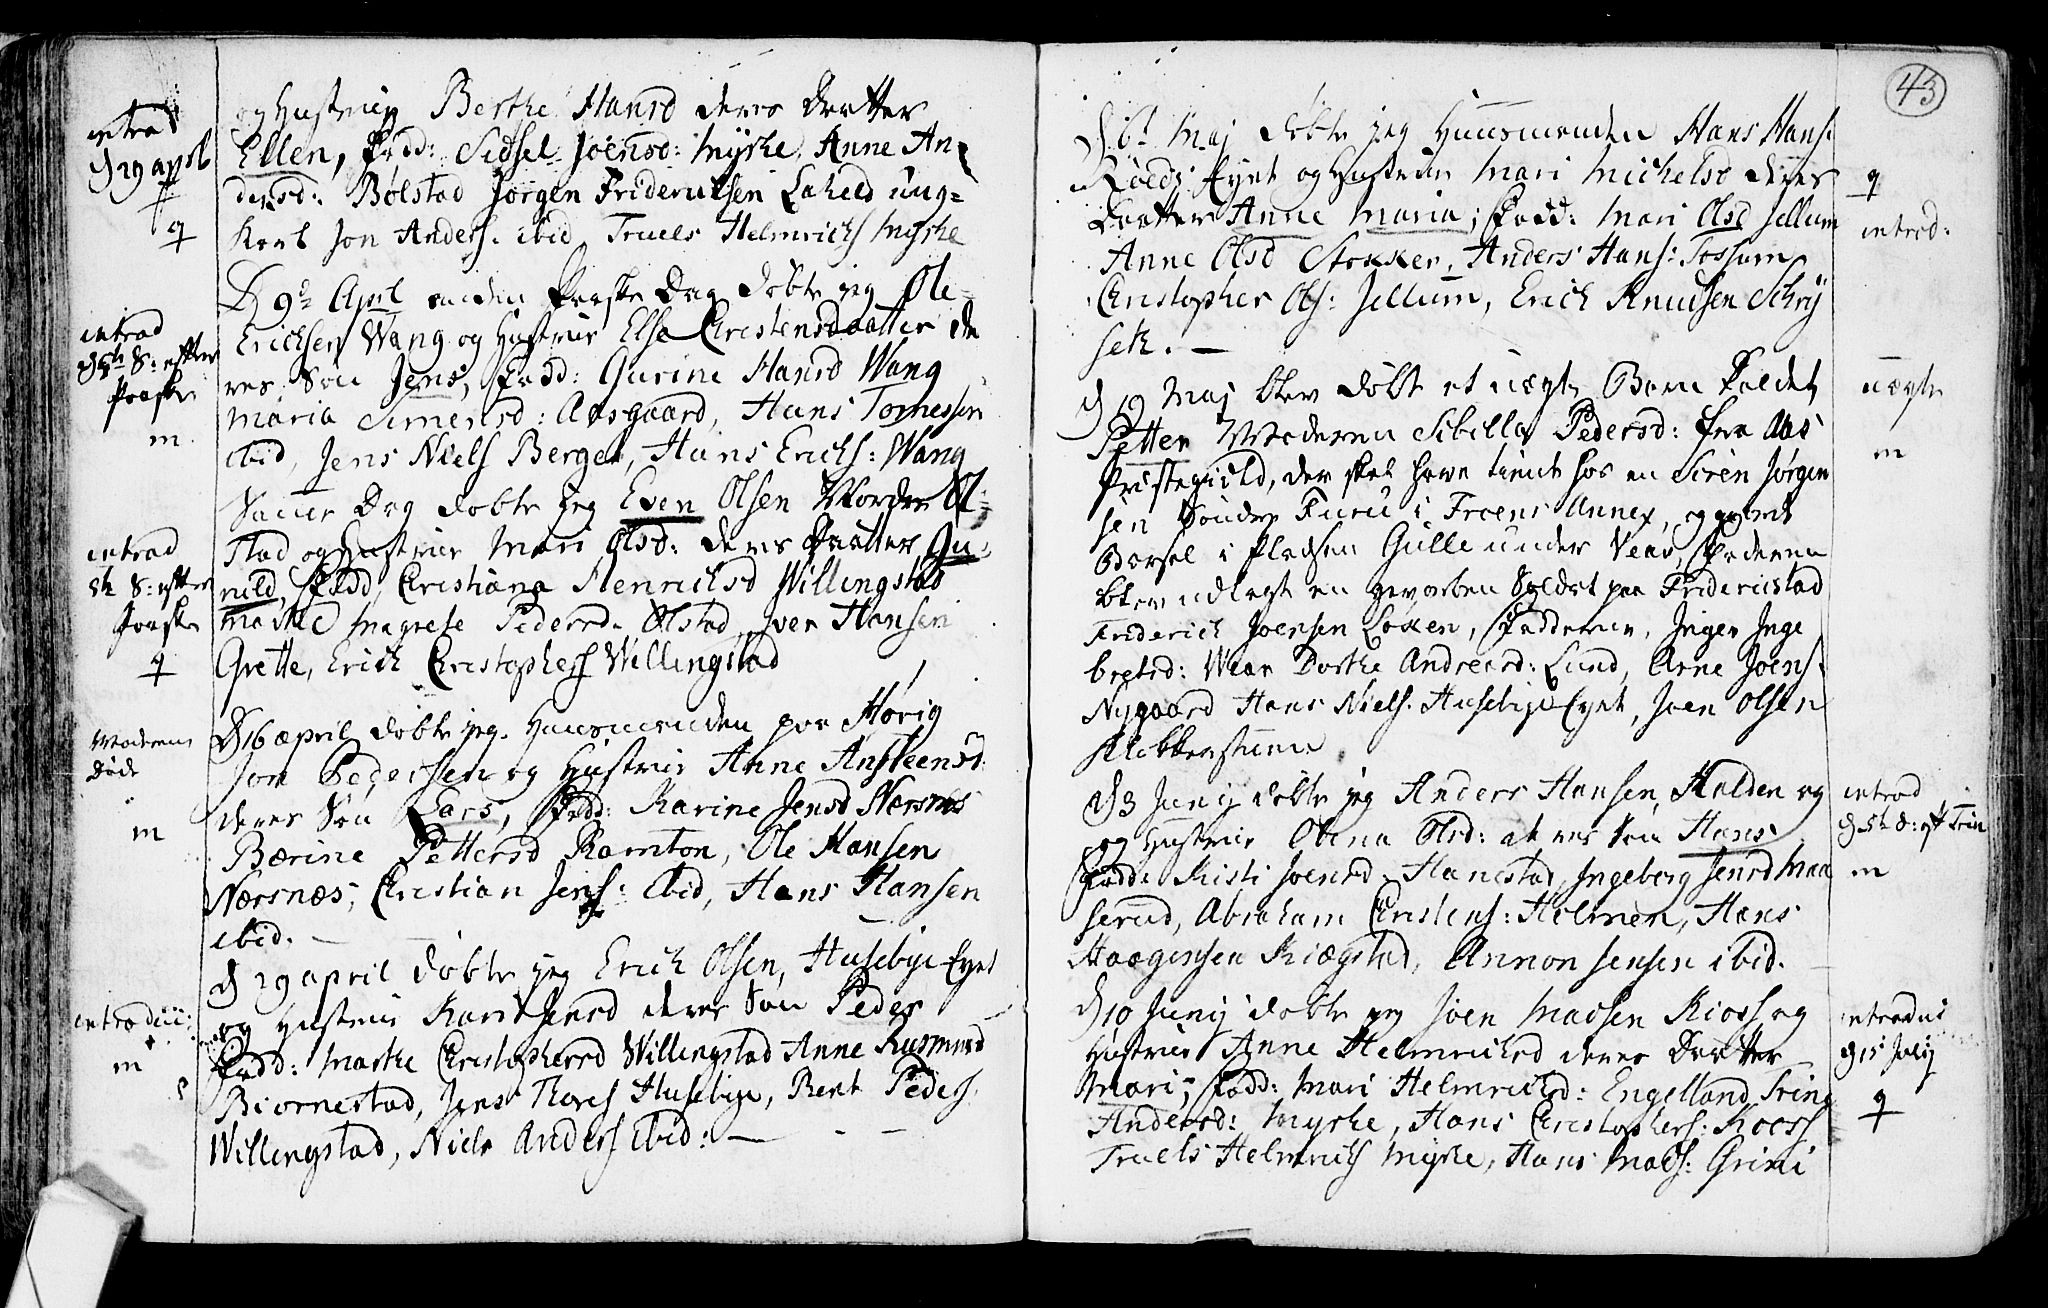 og Hustrue Berthe Hansd deres Daatter
Ellen, Fadd: Sidsel Joensd: Myhre, Anne An=
dersd: Bølstad Jørgen Friderichsen Laheld ung=
Karl Jon Anders: ibid Truels Helmrichs Myhre
introd
d 29 april
q
D 9de April anden Paaske Dag døbte jeg Ole
Erichsen Wang og Hustrue Else Christensdaatter de
res Søn Jens, Fadd: Gurine Hansd Wang
Maria Simensd: Aasgaard, Hans Tomessen
ibid, Jens Niels Berger, Hans Erichs: Wang
introd
d 5te S: efter
Paaske
m
Samme Dag døbte jeg Even Olsen Nordre Øl=
stad og Hustrue Mari Olsd: deres Daatter Gu=
nild, Fadd, Christiana Henrichsd Willingstad
Marthe Magrete Pedersd: Ølstad, Iver Hansen
Grette, Erich Christophers Willingstad
introd
5te S: efter
Paaske
q
D 16 april døbte jeg Huusmanden paa Hørig
Jon Pedersen og Hustrue Anne Ansteensd:
deres Søn Lars, Fadd: Karine Jensd Nærsnes
Bærine Pettersd Ramton, Ole Hansen
Nærsnæs, Christian Jens: ibid, Hans Hansen
ibid. —
Moderen
døde
m
d 29 april døbte jeg Erich Olsen, Husebye Eyet
og Hustrue Kari Jensd deres Søn Peder
Fadd: Marthe Christophersd Willingstad Anne Rasmusd
Biornestad, Jens Thores Husebye, Bent Peders
Willingstad, Niels Anders ibid: —
introduc:
m
43
D. 6t Maj døbte jeg Huusmanden Hans Hans:
Eyet og Hustrue Mari Michelsd deres
Daatter Anne Maria; Fadd: Mari Olsd Jellum
Anne Olsd Stokker, Anders Hans: Tossum
Christopher Ols: Jellum, Erich Knudsen Schry
seth. —
q
introd:
D 19 Maj blev døbt et uægte Barn kaldet
Petter Moderen Sibilla Pedersd: fra Aas
Præstegield, der skal have tient hos en Siren Jørgen
sen Søndre Furu i Froens Annex, og giordt
Barsel i Pladsen Gulle under Vear, Faderen
blev udlagt en hverben Soldat paa Friderichstad
Friderich Joensen Løken, Fadderne, Inger Inge
bretsd: Wear Dorthe Andreasd: Lund, Arne Joens:
Nygaard Hans Niels: Husebye Eyet, Joen Olsen
Klokkerstuen
uægte
m
D 3 Junij døbte jeg Anders Hansen, Halden og
og Hustrue Olena Olsd: deres Søn Hans
Fadd: Kisti Joensd: Hanestad, Ingeborg Jensd Maa
serud, Abraham Christens: Holmen, Hans
Haagensen Kiægstad, Annon Jensen ibid.
introd
d 5te S: eft Trin
m
D 10 Junij døbte jeg Joen Madsen Kioss og
Hustrue Anne Helmrichsd deres Daatter
Mari; Fadd: Mari Helmrichsd: Engelland, Trine
Andersd: Myhre, Hans Christophers: Kioss
Truels Helmrichs Myhre, Hans Mads: Grini
introduc
d 15 Julij
q